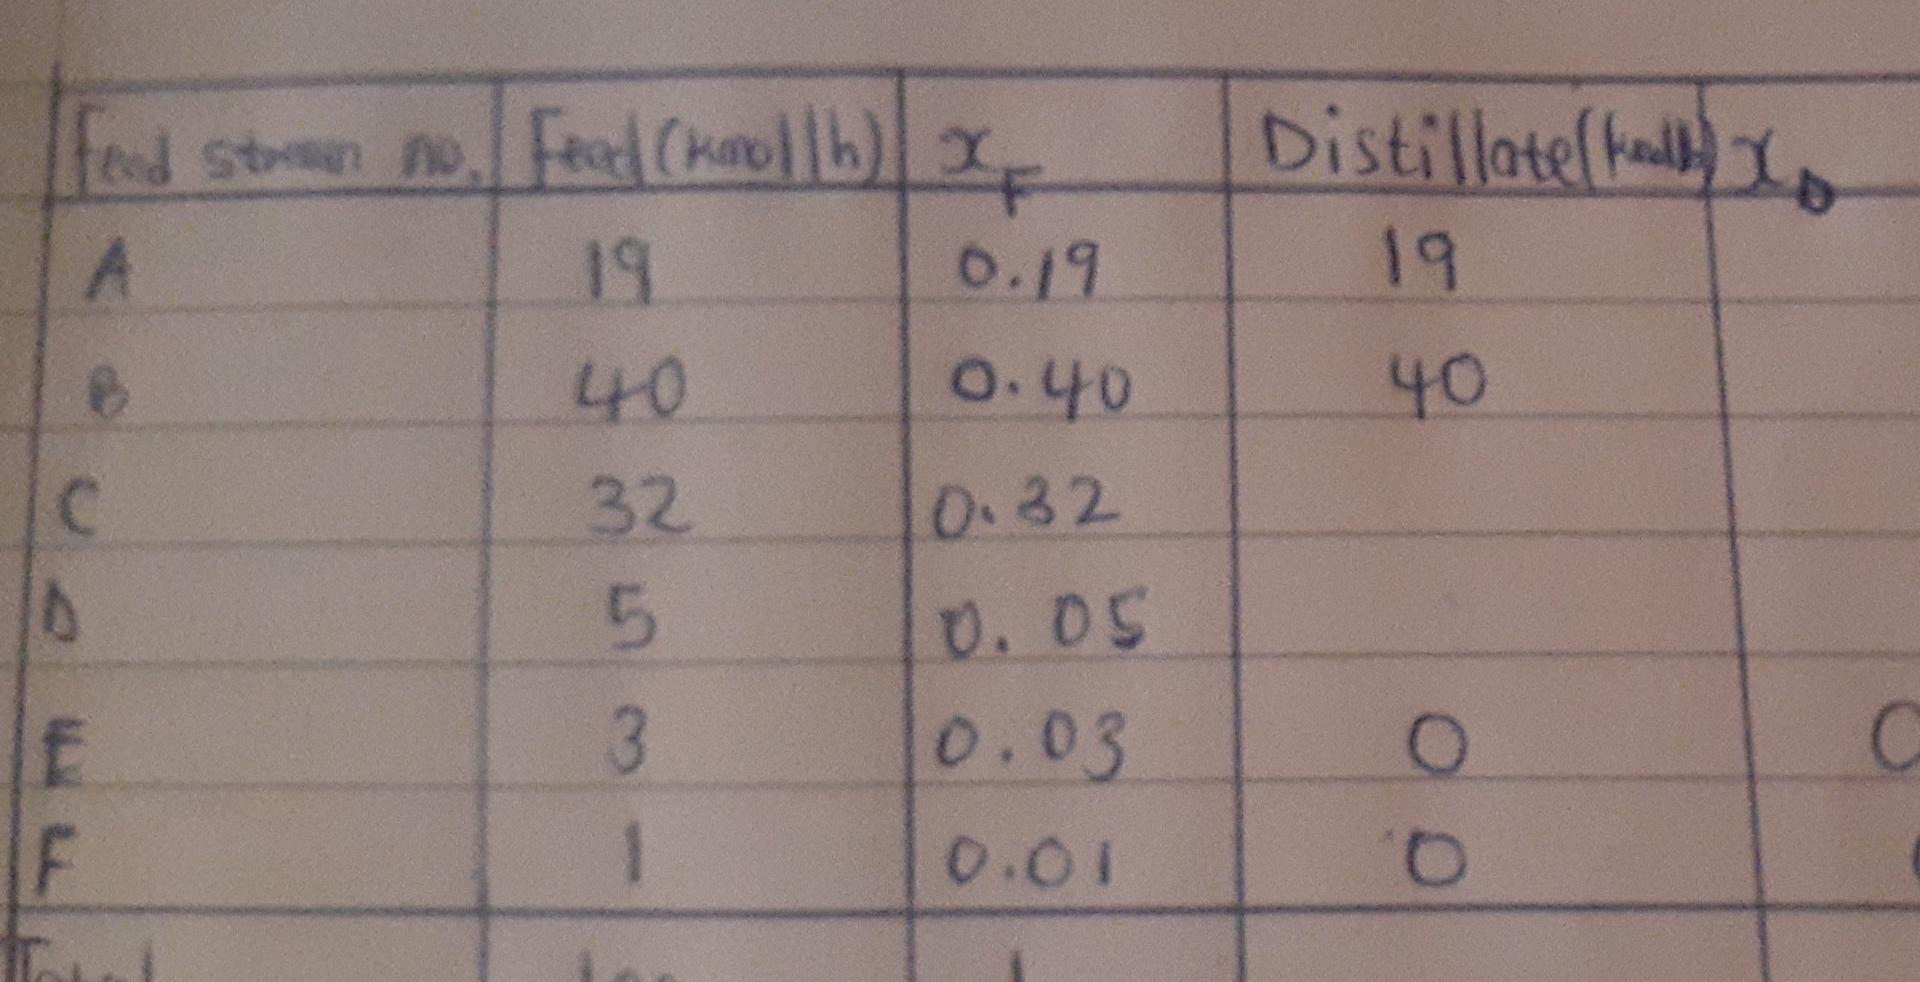 Feed stream no. Feed (kmol/h) x_F Distillate (kmol/h) x_D
A 19 0.19 19
B 40 0.40 40
C 32 0.32
D 5 0.05
E 3 0.03 0 0
F 1 0.01 0
Total 100 1